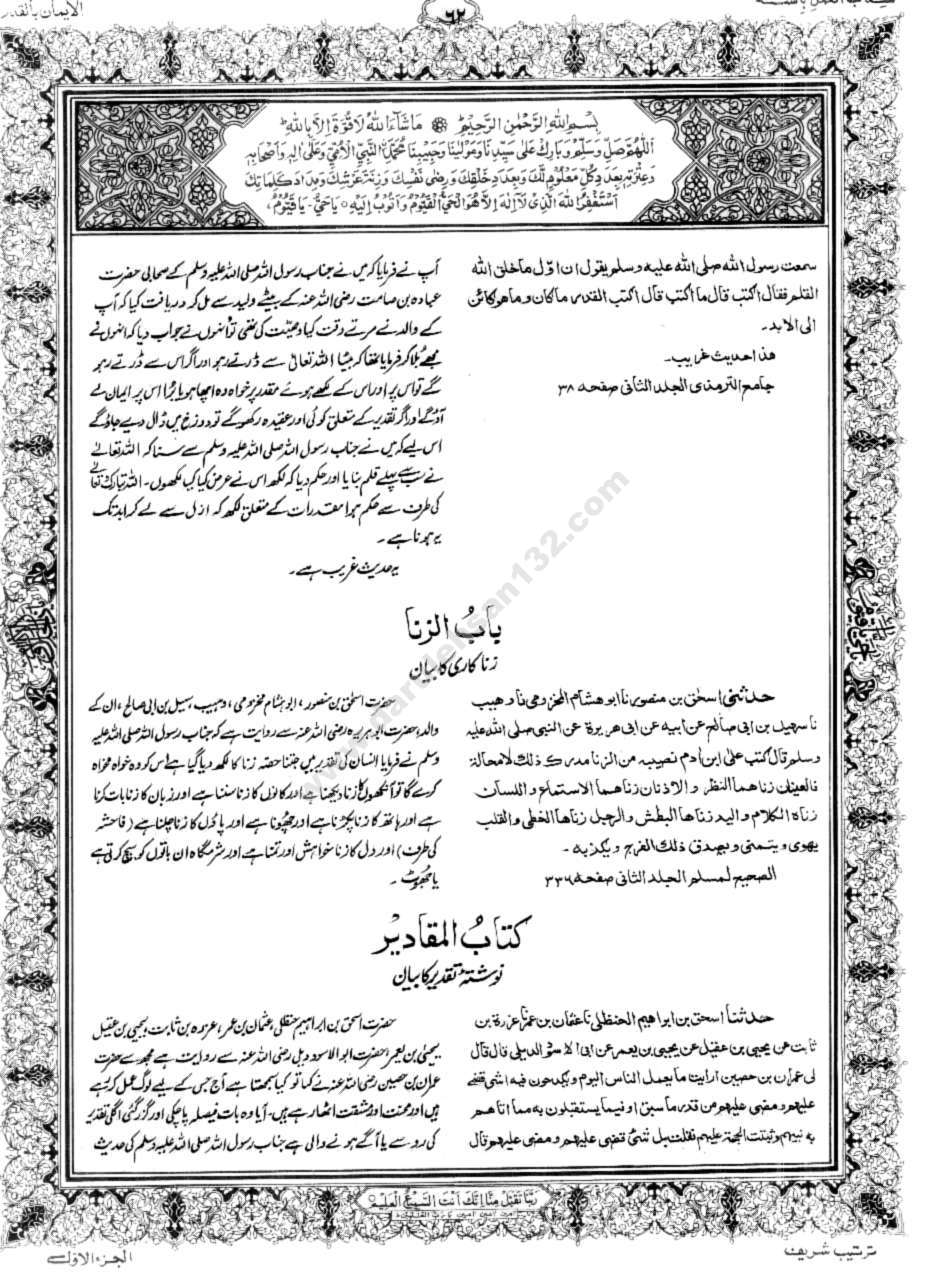 الايمان بالقدر
٦٢
بِسْمِ اللهِ الرَّحْمٰنِ الرَّحِيْمِ مَا شَآءَ اللهُ لَا قُوَّةَ اِلَّا بِاللهِ ط
اَللّٰهُمَّ صَلِّ وَسَلِّمْ وَبَارِكْ عَلٰى سَيِّدِنَا وَمَوْلٰينَا وَحَبِيْبِنَا مُحَمَّدِ نِ النَّبِيِّ الْاُمِّيِّ وَعَلٰى اٰلِهٖ وَاَصْحَابِهٖ
وَعِتْرَتِهٖ بِعَدَدِ كُلِّ مَعْلُوْمٍ لَّكَ وَبِعَدَدِ خَلْقِكَ وَرِضٰى نَفْسِكَ وَزِنَةِ عَرْشِكَ وَمِدَادِ كَلِمَاتِكَ
اَسْتَغْفِرُ اللهَ الَّذِىْ لَآ اِلٰهَ اِلَّا هُوَ الْحَيُّ الْقَيُّوْمُ وَاَتُوْبُ اِلَيْهِ ٥ يَا حَيُّ ۔ يَا قَيُّوْمُ ،
سمعت رسول الله صلى الله عليه وسلم يقول ان اوّل ما خلق الله
القلم فقال اكتب قال ما اكتب قال اكتب القدر ما كان وما هو كائن
الى الابد۔
هذا حديث غريب۔
جامع الترمذى المجلد الثانى صفحه ٣٨
آپ نے فرمایا کہ میں نے جناب رسول اللہ صلی اللہ علیہ وسلم کے صحابی حضرت
عبادہ بن صامت رضی اللہ عنہ کے بیٹے ولید سے مل کر دریافت کیا کہ آپ
کے والد نے مرتے وقت کیا وصیّت کی تھی تو اُنھوں نے جواب دیا کہ انھوں نے
مجھے بُلا کر فرمایا تھا کہ بیٹا اللہ تعالیٰ سے ڈرتے رہو اور اگر اس سے ڈرتے رہو
گے تو اس پر اور اس کے لکھے ہوئے مقدر پر خواہ وہ اچھا ہو یا بُرا اس پر ایمان لے
آؤ گے اور اگر تقدیر کے متعلق کوئی اور عقیدہ رکھو گے تو دوزخ میں ڈال دیے جاؤ گے
اس لیے کہ میں نے جناب رسول اللہ صلی اللہ علیہ وسلم سے سنا کہ اللہ تعالےٰ
نے سب سے پہلے قلم بنایا اور حکم دیا کہ لکھ اس نے عرض کیا کیا لکھوں۔ اللہ تبارک تعالیٰ
کی طرف سے حکم ہوا مقدرات کے متعلق لکھ کہ ازل سے لے کر ابد تک
یہ ہونا ہے۔
یہ حدیث غریب ہے۔
بابُ الزنا
زنا کاری کا بیان
حدثنى اسحٰق بن منصور نا ابو هشام المخزومى نا وهيب
نا سهيل بن ابى صالح عن ابيه عن ابى هريرة عن النبى صلى الله عليه
وسلم قال كتب على ابن ادم نصيبه من الزنا مدرك ذلك لا محالة
فالعينان زناهما النظر والاذنان زناهما الاستماع واللسان
زناه الكلام واليد زناها البطش والرجل زناها الخطى والقلب
يهوى ويتمنى ويصدق ذلك الفرج ويكذبه۔
الصحيح لمسلم الجلد الثانى صفحه ٣٣٦
حضرت اسحٰق بن منصور، ابو ہشام مخزومی، وہیب، سہیل بن ابی صالح، ان کے
والد، حضرت ابو ہریرہ رضی اللہ عنہ سے روایت ہے کہ جناب رسول اللہ صلی اللہ علیہ
وسلم نے فرمایا انسان کی تقدیر میں جتنا حصّہ زنا کا لکھ دیا گیا ہے اس کو وہ خواہ مخواہ
کرے گا تو آنکھوں کا زنا دیکھنا ہے اور کانوں کا زنا سننا ہے اور زبان کا زنا بات کرنا
ہے اور ہاتھ کا زنا پکڑنا ہے اور چھُونا ہے اور پاؤں کا زنا چلنا ہے (فاحشہ
کی طرف) اور دل کا زنا خواہش اور تمنا ہے اور شرمگاہ ان باتوں کو سچ کرتی ہے
یا جھُوٹ۔
كتابُ المقادير
نوشتۂ تقدیر کا بیان
حدثنا اسحق بن ابراهيم الحنظلى نا عثمان بن عمر نا عزرة بن
ثابت عن يحيى بن عقيل عن يحيى بن يعمر عن ابى الاسود الديلى قال قال
لى عمران بن حصين ارايت ما يعمل الناس اليوم ويكدحون فيه اشئ قضى
عليهم ومضى عليهم من قدر ما سبق او فيما يستقبلون به مما اتاهم
به نبيهم وثبتت الحجة عليهم فقلت بل شئ قضى عليهم ومضى عليهم قال
حضرت اسحٰق بن ابراہیم حنظلی، عثمان بن عمر، عزرہ بن ثابت، یحییٰ بن عقیل
یحییٰ بن یعمر، حضرت ابو الاسود دیلی رضی اللہ عنہ سے روایت ہے مجھ سے حضرت
عمران بن حصین رضی اللہ عنہ نے کہا تو کیا سمجھتا ہے آج جس کے لیے لوگ عمل کرتے
ہیں اور محنت اور مشقت اٹھا رہے ہیں۔ آیا وہ بات فیصلہ پا چکی اور گزر گئی اگلی تقدیر
کی رو سے یا آگے ہونے والی ہے جناب رسول اللہ صلی اللہ علیہ وسلم کی حدیث
رَبَّنَا تَقَبَّلْ مِنَّا اِنَّكَ اَنْتَ السَّمِيْعُ الْعَلِيْمُ
ترتیب شریف
الجزء الاوّل
www.darulehsan132.com